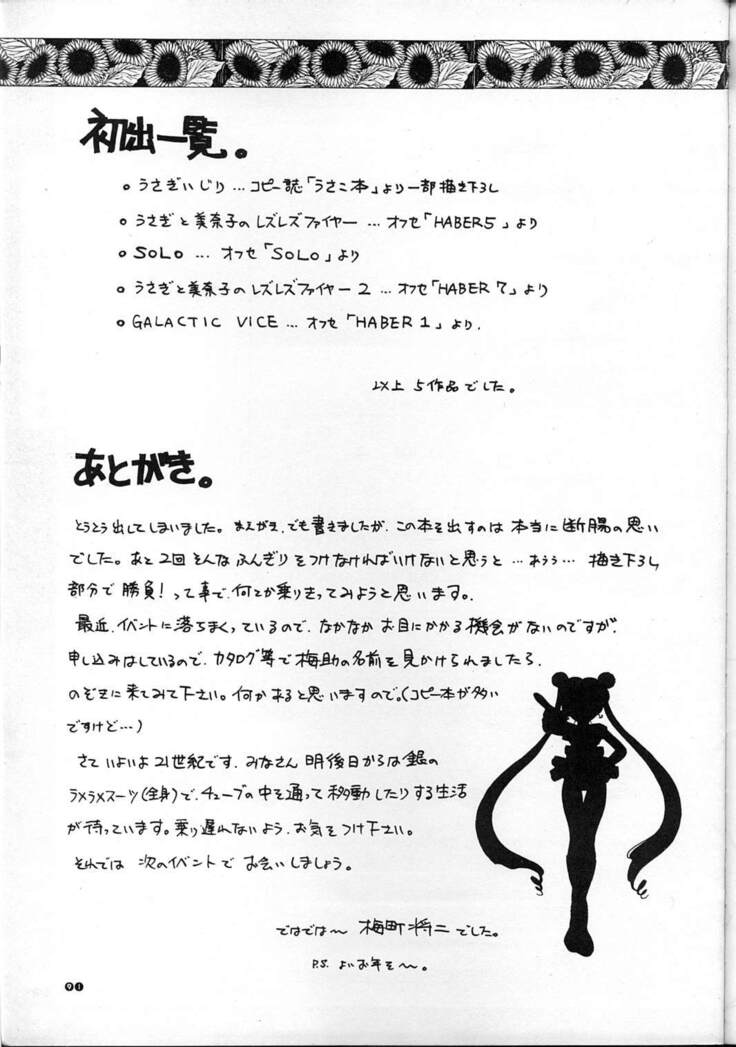 初出一覧。
○うさぎいじり…コピー誌「うさこ本」より一部描き下ろし
○うさぎと美奈子のレズレズファイヤー…オフセ「HABER5」より
○SOLO…オフセ「SOLO」より
○うさぎと美奈子のレズレズファイヤー2…オフセ「HABER7」より
○GALACTIC VICE…オフセ「HABER1」より.
以上5作品でした。
あとがき。
とうとう出してしまいました。まえがき.でも書きましたが.この本を出すのは本当に断腸の思い
でした。あと2回そんなふんぎりをつけなければいけないと思うと…おうぅ…描き下ろし
部分で勝負！って事で.何とか乗りきってみようと思います。
最近.イベントに落ちまくっているので.なかなかお目にかかる機会がないのですが.
申し込みはしているので.カタログ等で梅助の名前を見かけられましたら.
のぞきに来てみて下さい。何かあると思いますので。(コピー本が多い
ですけど…)
さていよいよ21世紀です.みなさん明後日からは銀の
ラメラメスーツ(全身)で.チューブの中を通って移動したりする生活
が待っています。乗り遅れないよう.お気をつけ下さい。
それでは次のイベントでお会いしましょう。
ではでは〜梅町将二でした。
P.S.よいお年を〜。
91